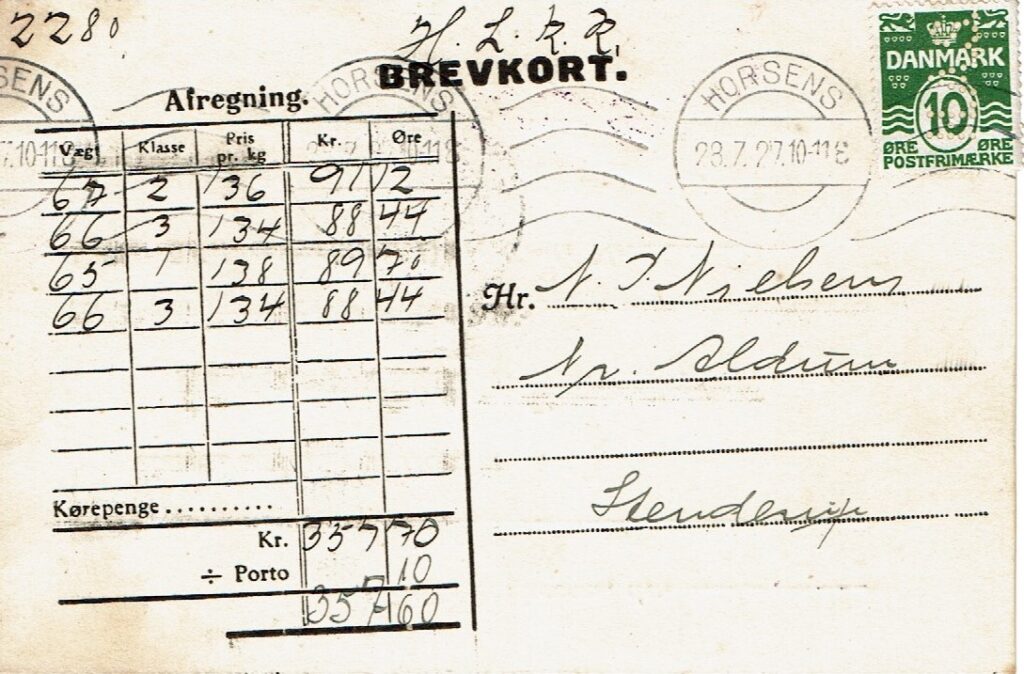 2280
H. L. K. R.
BREVKORT.
HORSENS
28.7.27.10-11 E
DANMARK
10
ØRE ØRE
POSTFRIMÆRKE
Afregning.
Vægt Klasse Pris pr. kg Kr. Øre
67 2 136 91 12
66 3 134 88 44
65 1 138 89 70
66 3 134 88 44
Kørepenge..........
Kr. 357 70
÷ Porto 10
357 60
Hr. N. Nielsen
Nr. Aldum
Stenderup